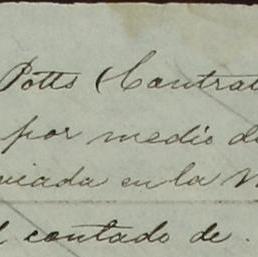 Potts (Contrat
por medio de
viada en la
l contado de